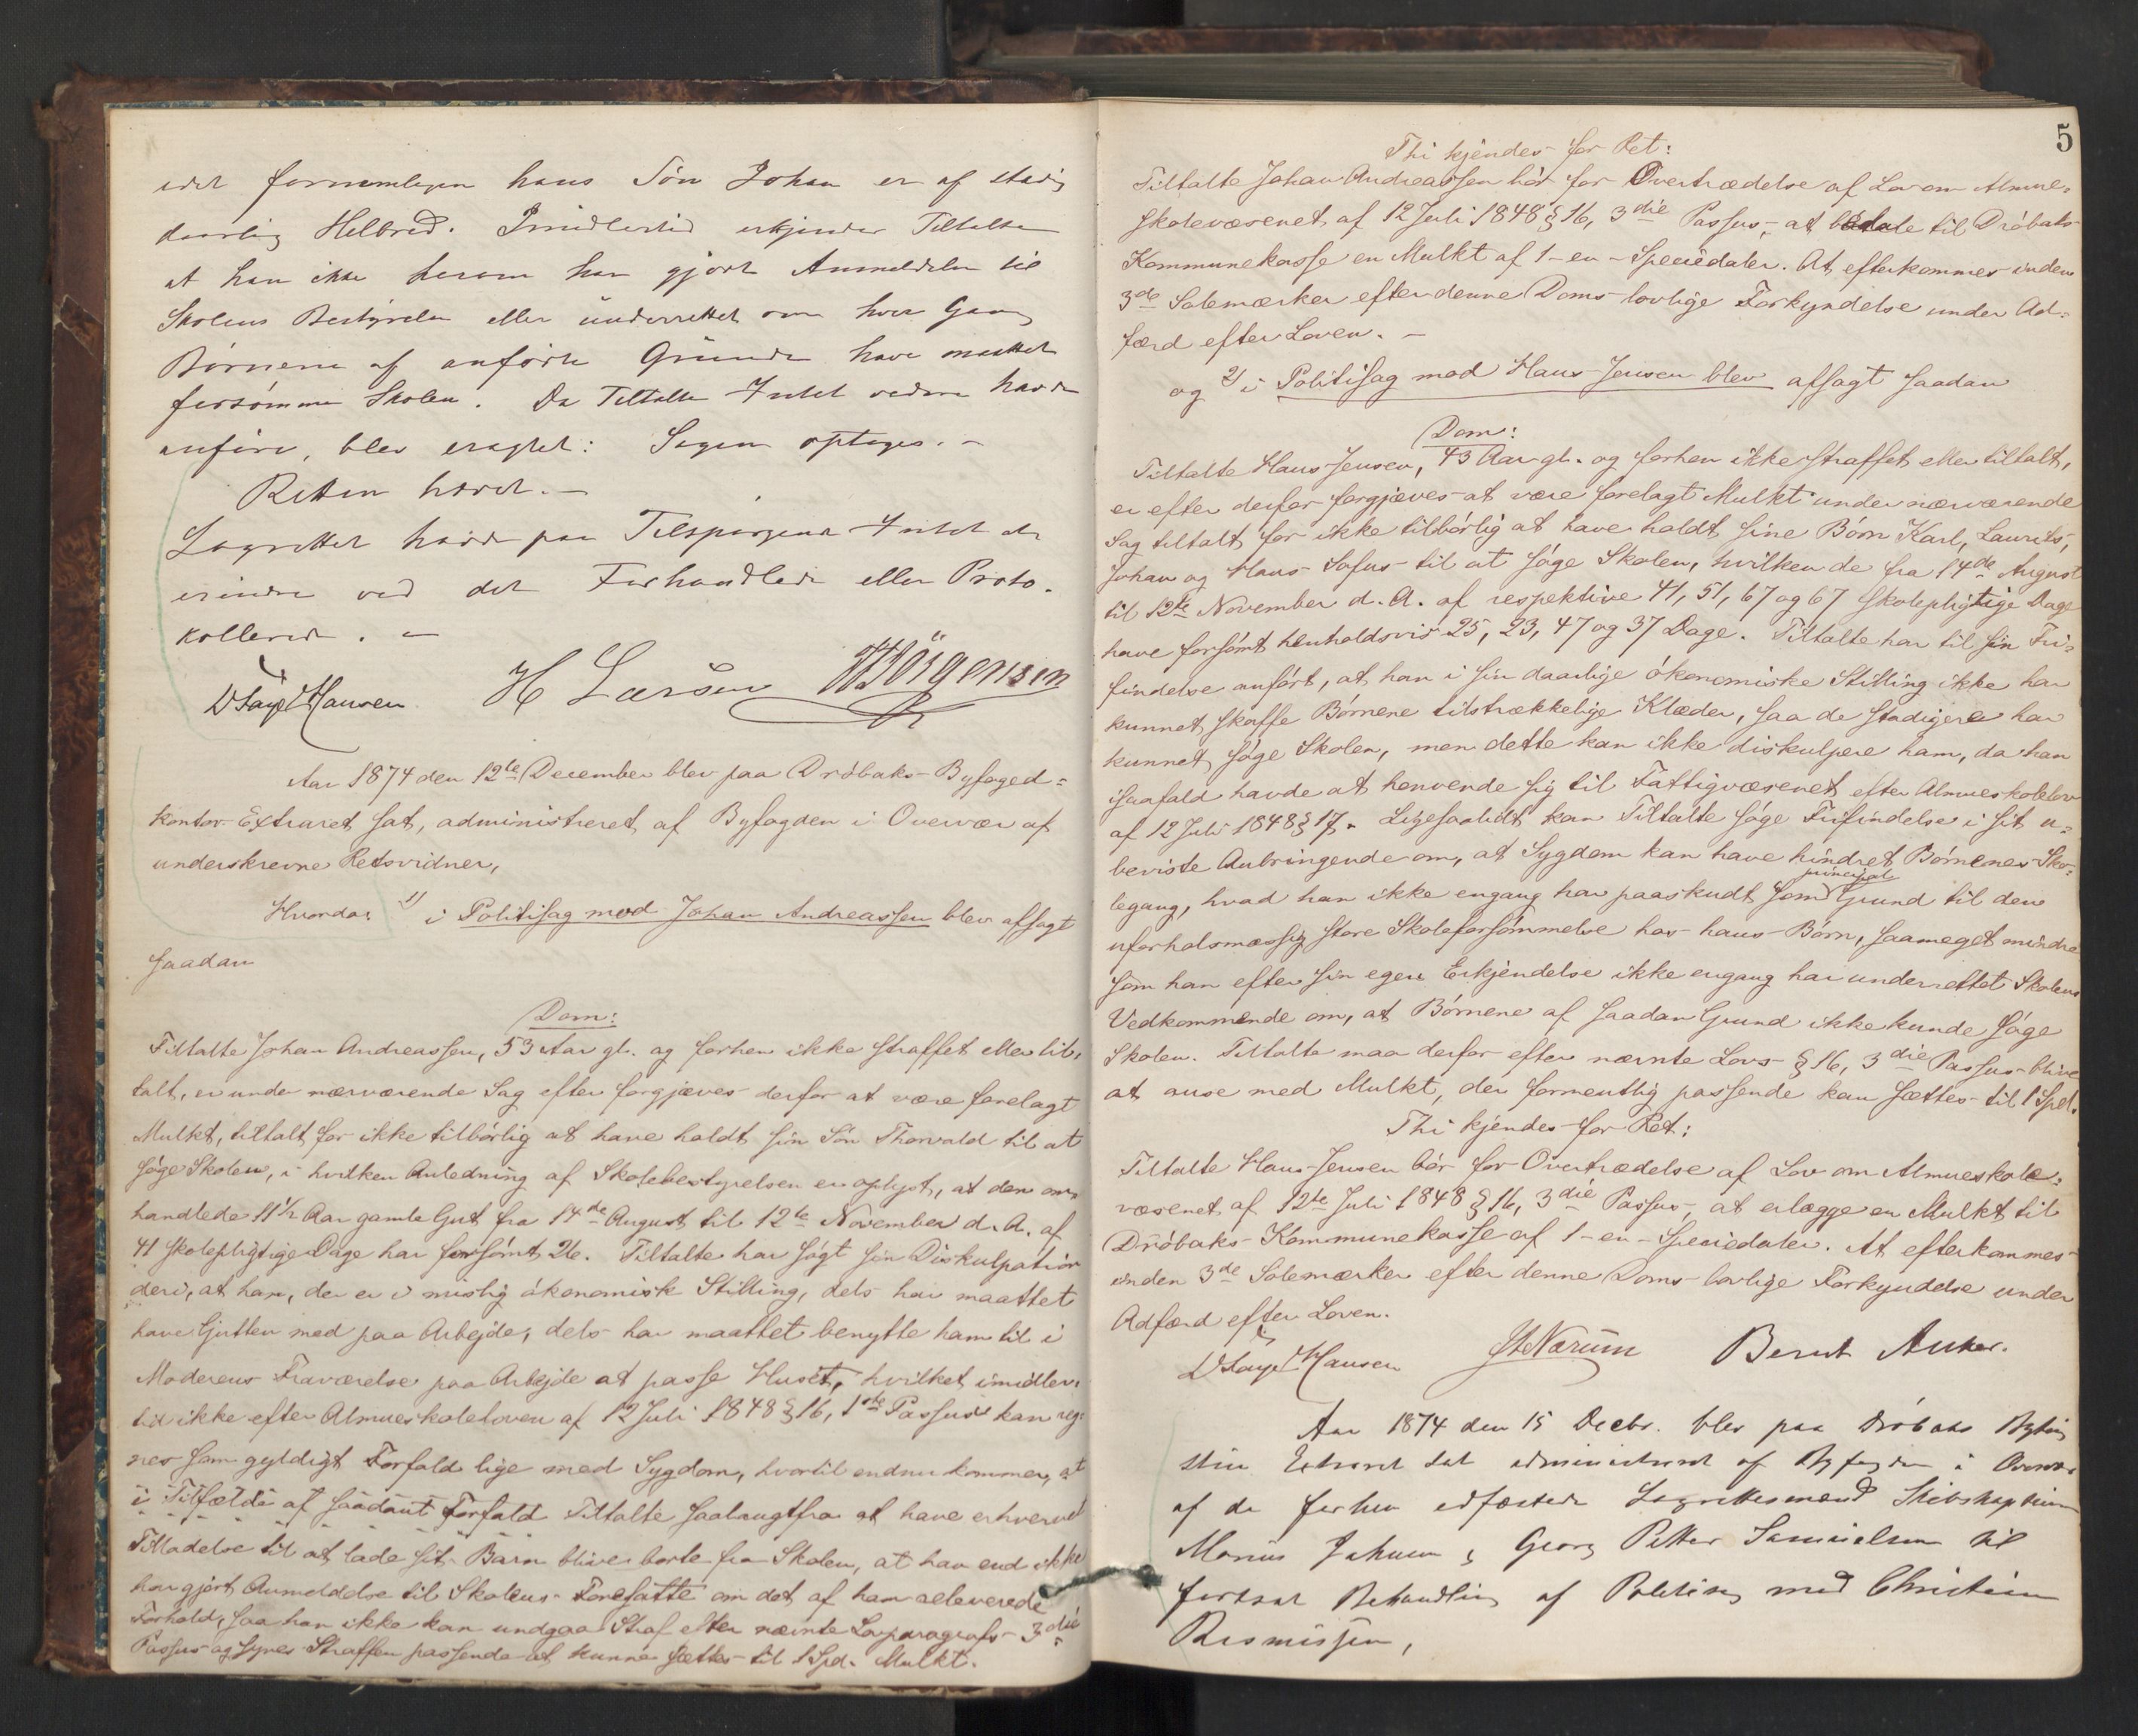 idet fornemlegen hans Søn Johan er af stadig
daarlig Helbred. Imidlertid erkjender Tiltalte
at han ikke herom har gjort Anmeldelse til
Skolens Bestyrelse eller underrettet om hver Gang
Børnene af anførte Grunde have maattet
forsømme Skolen. Da Tiltalte Intet videre havde
anføre, blev eragtet: Sagen optages. -
Retten hævet. -
Lagrettet havde paa Tilspørgende Intet at
erindre ved det Forhandlede eller Proto-
kollerede. -
Hansen H Larsen Jörgensen
Aar 1874 den 12te December blev paa Drøbaks Byfoged-
kontor Extraret sat, administreret af Byfogden i Overvær af
underskrevne Retsvidner,
Hvorda: 1) i Politisag mod Johan Andreassen blev afsagt
saadan
Dom:
Tiltalte Johan Andreassen, 53 Aar gl. og forhen ikke straffet eller til-
talt, er under nærværende Sag efter forgjæves derfor at være forelagt
Mulkt, tiltalt for ikke tilbørlig at have holdt sin Søn Thorvald til at
søge Skolen, i hvilken Anledning af Skolebestyrelsen er oplyst, at den om-
handlede 11½ Aar gamle Gut fra 14de August til 12te November d. A. af
41 skolepligtige Dage har forsømt 26. Tiltalte har søgt sin Diskulpation
deri, at han, der er i mislig økonomisk Stilling, dels har maattet
have Gutten med paa Arbejde, dels har maattet benytte ham til i
Moderens Fraværelse paa Arbejde at passe Huset, hvilket imidler-
tid ikke efter Almueskoleloven af 12 Juli 1848 § 16, 1ste Passus kan reg-
nes som gyldigt Forfald lige med Sygdom, hvortil endnu kommer, at
i Tilfælde af saadant Forfald Tiltalte saalangtfra at have erhvervet
Tilladelse til at lade sit Barn blive borte fra Skolen, at han end ikke
har gjort Anmeldelse til Skolens Foresatte om det af ham releverede
Forhold, saa han ikke kan undgaa Straf efter nævnte Lovparagrafs 3die
Passus og synes Straffen passende at kunne sættes til 1 Spd. Mulkt.
5
Thi kjendes for Ret:
Tiltalte Johan Andreassen bør for Overtrædelse af Lov om Almue-
skolevæsenet af 12 Juli 1848 § 16, 3die Passus, at betale til Drøbaks
Kommunekasse en Mulkt af 1 - en - Speciedaler. At efterkommes inden
3de Solemærker efter denne Doms lovlige Forkyndelse under Ad-
færd efter Loven. -
og 2) i Politisag mod Hans Jensen blev afsagt saadan
Dom:
Tiltalte Hans Jensen, 43 Aar gl. og forhen ikke straffet eller tiltalt,
er efter derfor forgjæves at være forelagt Mulkt under nærværende
Sag tiltalt for ikke tilbørlig at have holdt sine Børn Karl, Laurits,
Johan og Hans Sofus til at søge Skolen, hvilken de fra 14de August
til 12te November d. A. af respektive 41, 51, 67 og 67 skolepligtige Dage
have forsømt henholdsvis 25, 23, 47 og 37 Dage. Tiltalte har til sin Fri-
findelse anført, at han i sin daarlige økonomiske Stilling ikke har
kunnet skaffe Børnene tilstrækkelige Klæder, saa de stadigere har
kunnet søge Skolen, men dette kan ikke diskulpere ham, da han
isaafald havde at henvende sig til Fattigvæsenet efter Almueskolelov
af 12 Juli 1848 § 17. Ligesaalidt kan Tiltalte søge Frifindelse i sit u-
beviste Anbringende om, at Sygdom kan have hindret Børnenes Sko-
legang, hvad han ikke engang har paaskudt som principal Grund til den
uforholsmæssig store Skoleforsømmelse hos hans Børn, saameget mindre
som han efter sin egen Erkjendelse ikke engang har underrettet Skolens
Vedkommende om, at Børnene af saadan Grund ikke kunde søge
Skolen. Tiltalte maa derfor efter nævnte Lovs § 16, 3die Passus blive
at anse med Mulkt, der formentlig passende kan sættes til 1 Spd.
Thi kjendes for Ret:
Tiltalte Hans Jensen bør for Overtrædelse af Lov om Almueskole-
væsenet af 12te Juli 1848 § 16, 3die Passus, at erlægge en Mulkt til
Drøbaks Kommunekasse af 1 - en - Speciedaler. At efterkommes
inden 3de Solemærker efter denne Doms lovlige Forkyndelse under
Adfærd efter Loven.
Hansen Nærum Bernt Anker.
Aar 1874 den 15 Decbr. blev paa Drøbaks Bything
stue Extraret sat administreret af Byfogden i Overvær
af de forhen edfæstede Lagrettesmænd Skibskaptein
Marius Johnsen & Georg Petter Samuelsen til
fortsat Behandling af Politisag mod Christian
Rasmussen,